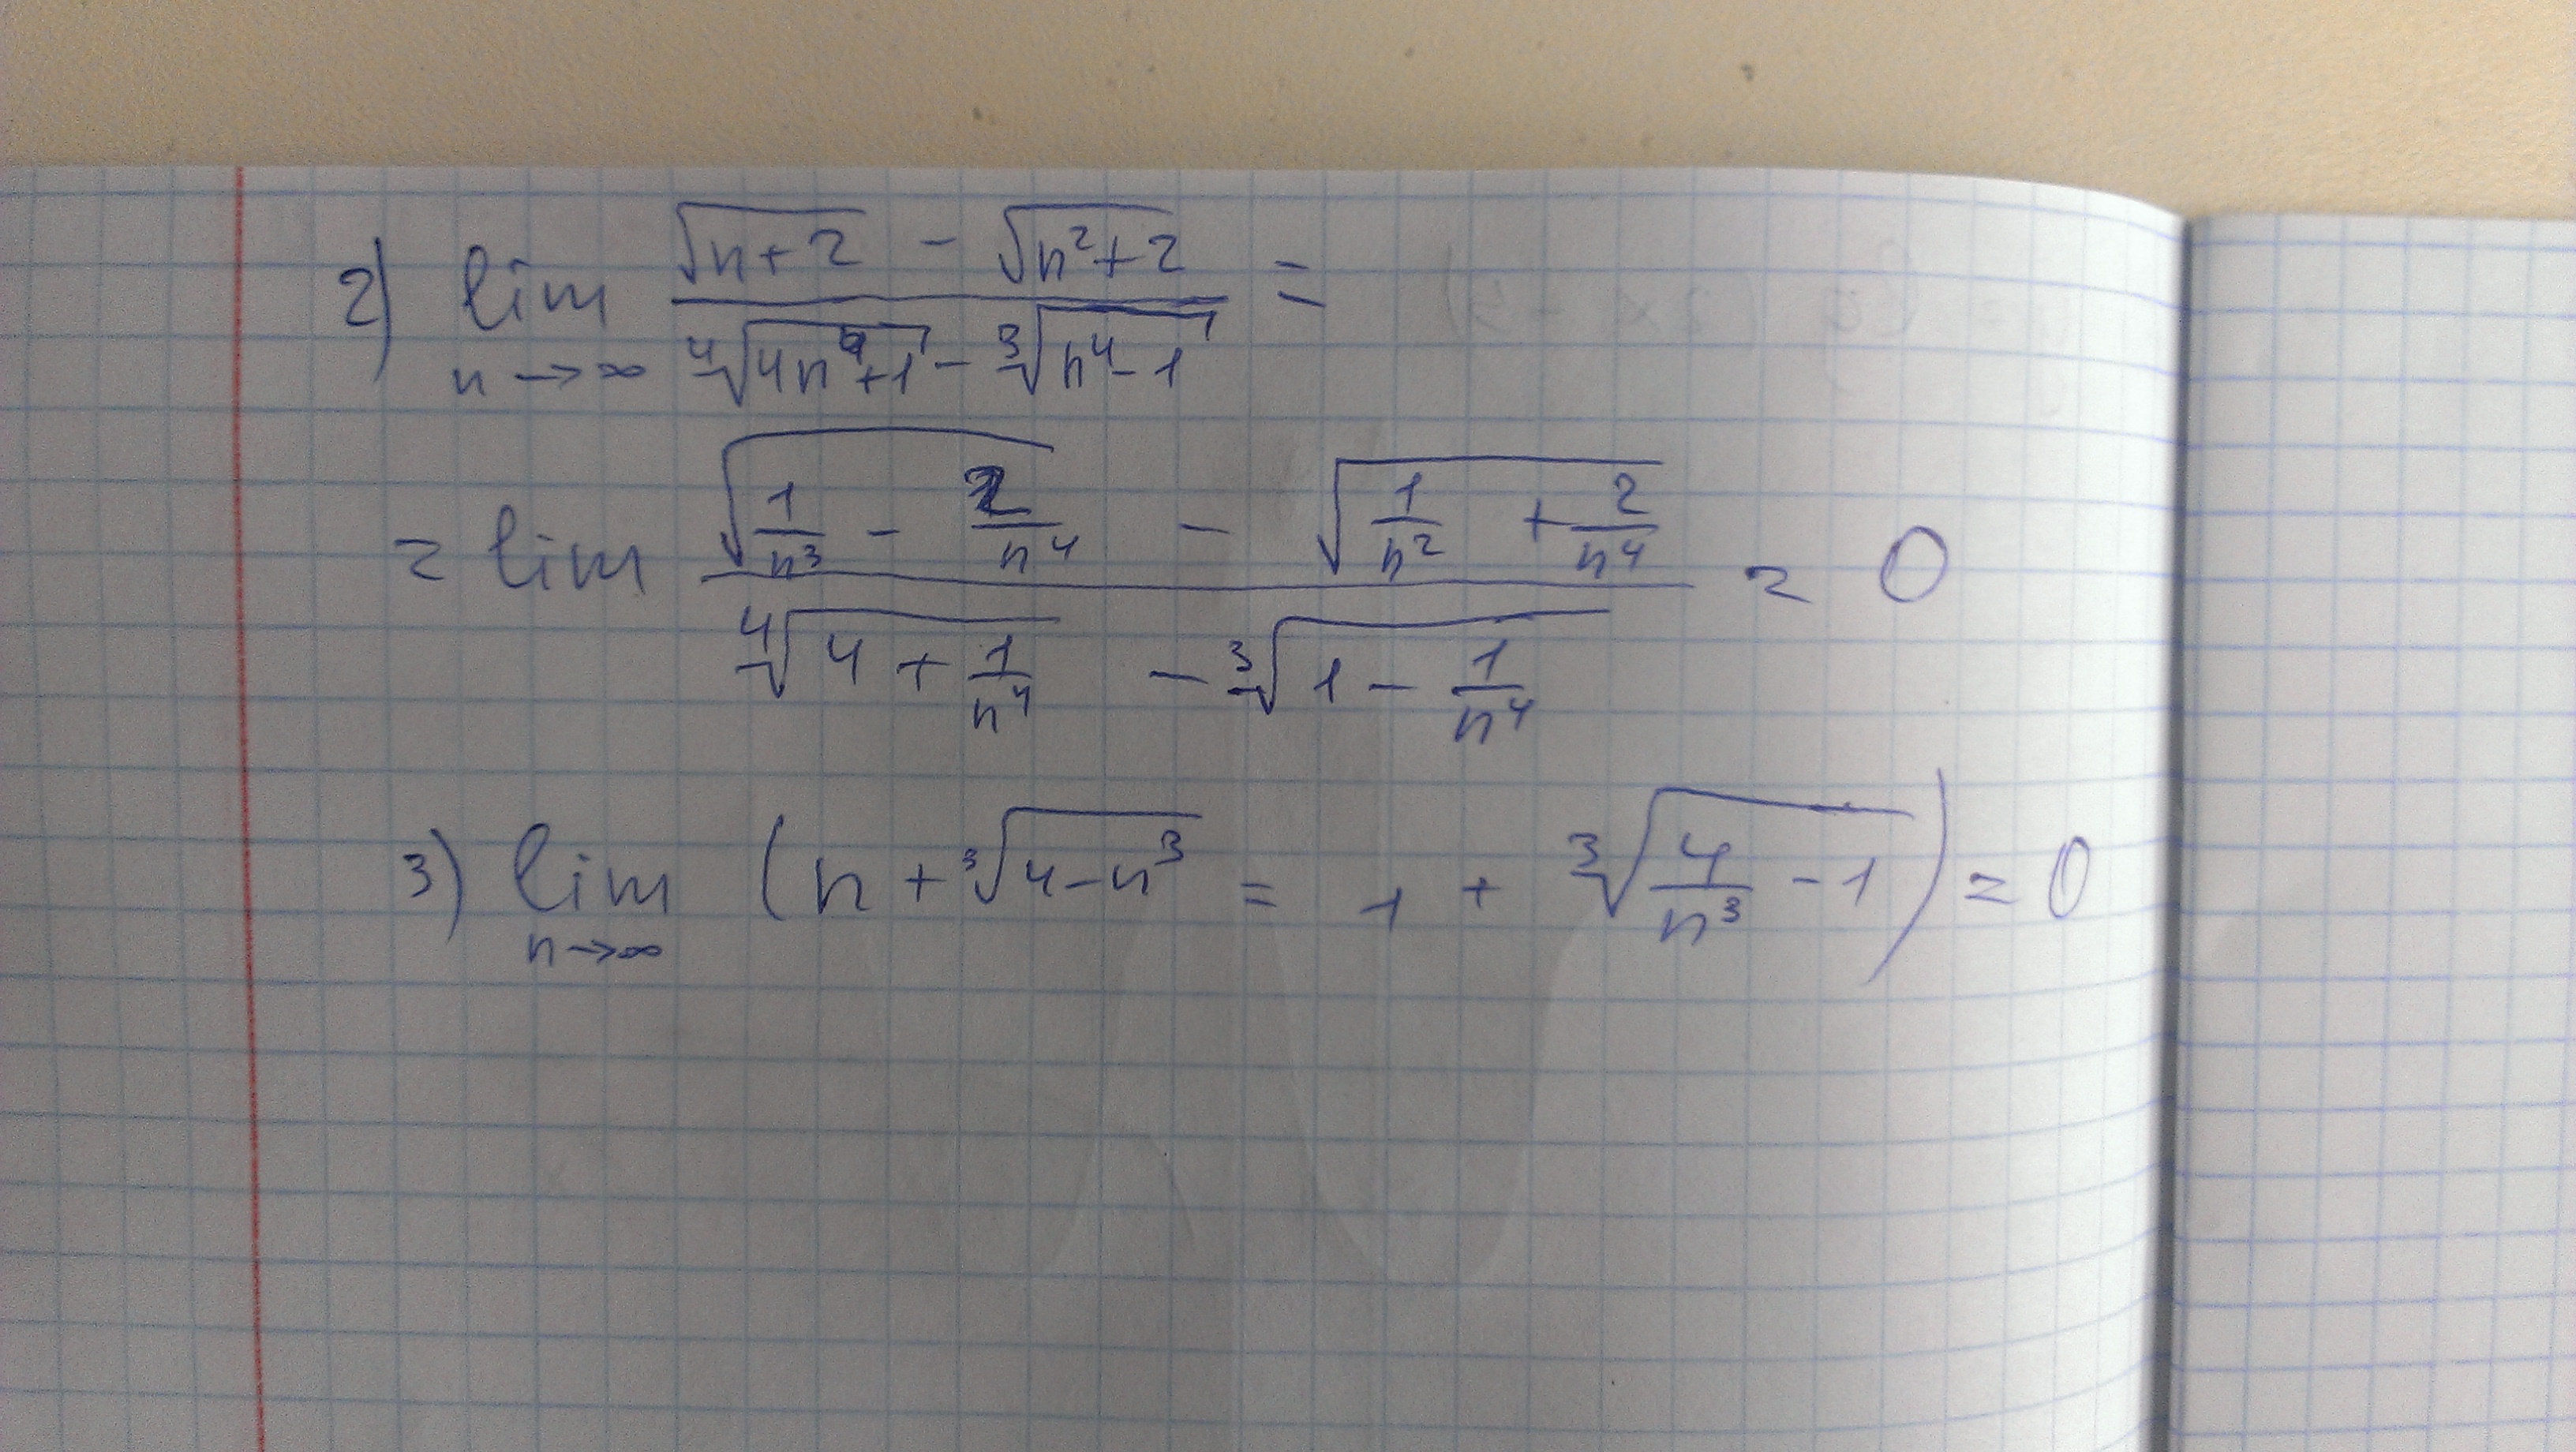 2) lim n→∞ (√(n+2) − √(n²+2)) / (⁴√(4n⁴+1) − ³√(n⁴−1)) =
= lim (√(1/n³ − 2/n⁴) − √(1/n² + 2/n⁴)) / (⁴√(4 + 1/n⁴) − ³√(1 − 1/n⁴)) = 0
3) lim n→∞ (n + ³√(4−n³) = 1 + ³√(4/n³ − 1)) = 0